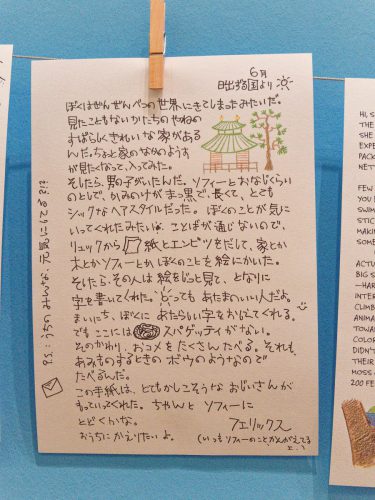 6月
日出ずる国より
ぼくはぜんぜんべつの世界にきてしまったみたいだ。
見たこともないかたちのやねの
すばらしくきれいな家がある
んだ。ちょっと家のなかのようす
が見たくなって、入ってみた。
そしたら、男の子がいたんだ。ソフィーとおなじくらい
のとしで、かみのけがまっ黒で、長くて、とても
シックなヘアスタイルだった。ぼくのことが気に
いってくれたみたい。ことばが通じないので、
リュックから紙とエンピツをだして、家とか
木とかソフィーとか、ぼくのことを絵にかいた。
そしたら、その人は絵をじっと見て、となりに
字を書いてくれた。とってもあたまのいい人だよ。
まいにち、ぼくにあたらしい字をおしえてくれる。
でもここにはスパゲッティがない。
そのかわり、おコメをたくさんたべる。それも、
あみものするときのボウのようなので
たべるんだ。
この手紙は、とてもかしこそうなおじいさんが
もっていってくれた。ちゃんとソフィーに
とどくかな。
おうちにかえりたいよ。
フェリックス
(いつもソフィーのことかんがえてる
P.S.:うちのみんな、元気にしてる?!?
HI, S
THE
SHE
EXPE
PACK
NET
FEW
YOU
SWIM
STIC
MAKI
SOME
ACTU
BIG S
—HAR
INTER
CLIMB
ANIMA
TOWA
COLOR
DIDN'T
THEIR
MOSS
200 FE